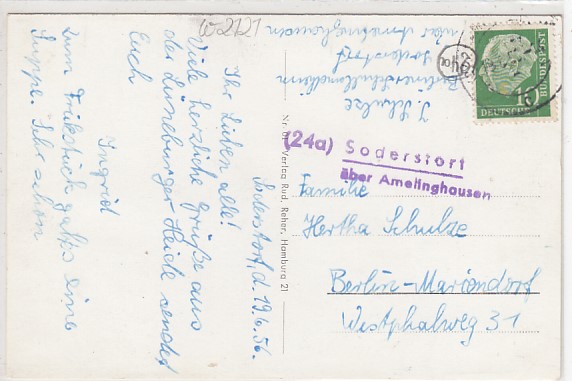 W2121
Soderstorf, d. 19.6.56.
Ihr Lieben alle!
Viele herzliche Grüße aus
der Lüneburger Heide sendet
Euch
Ingrid
Zum Frühstück gab's eine
Suppe. Sehr schön
Nr. 61 Verlag Rud. Reher, Hamburg 21
I. Schulze
Soderstorf
über Amelinghausen
10
DEUTSCHE BUNDESPOST
(24a) Soderstorf
über Amelinghausen
Familie
Hertha Schulze
Berlin-Mariendorf
Westphalweg 31